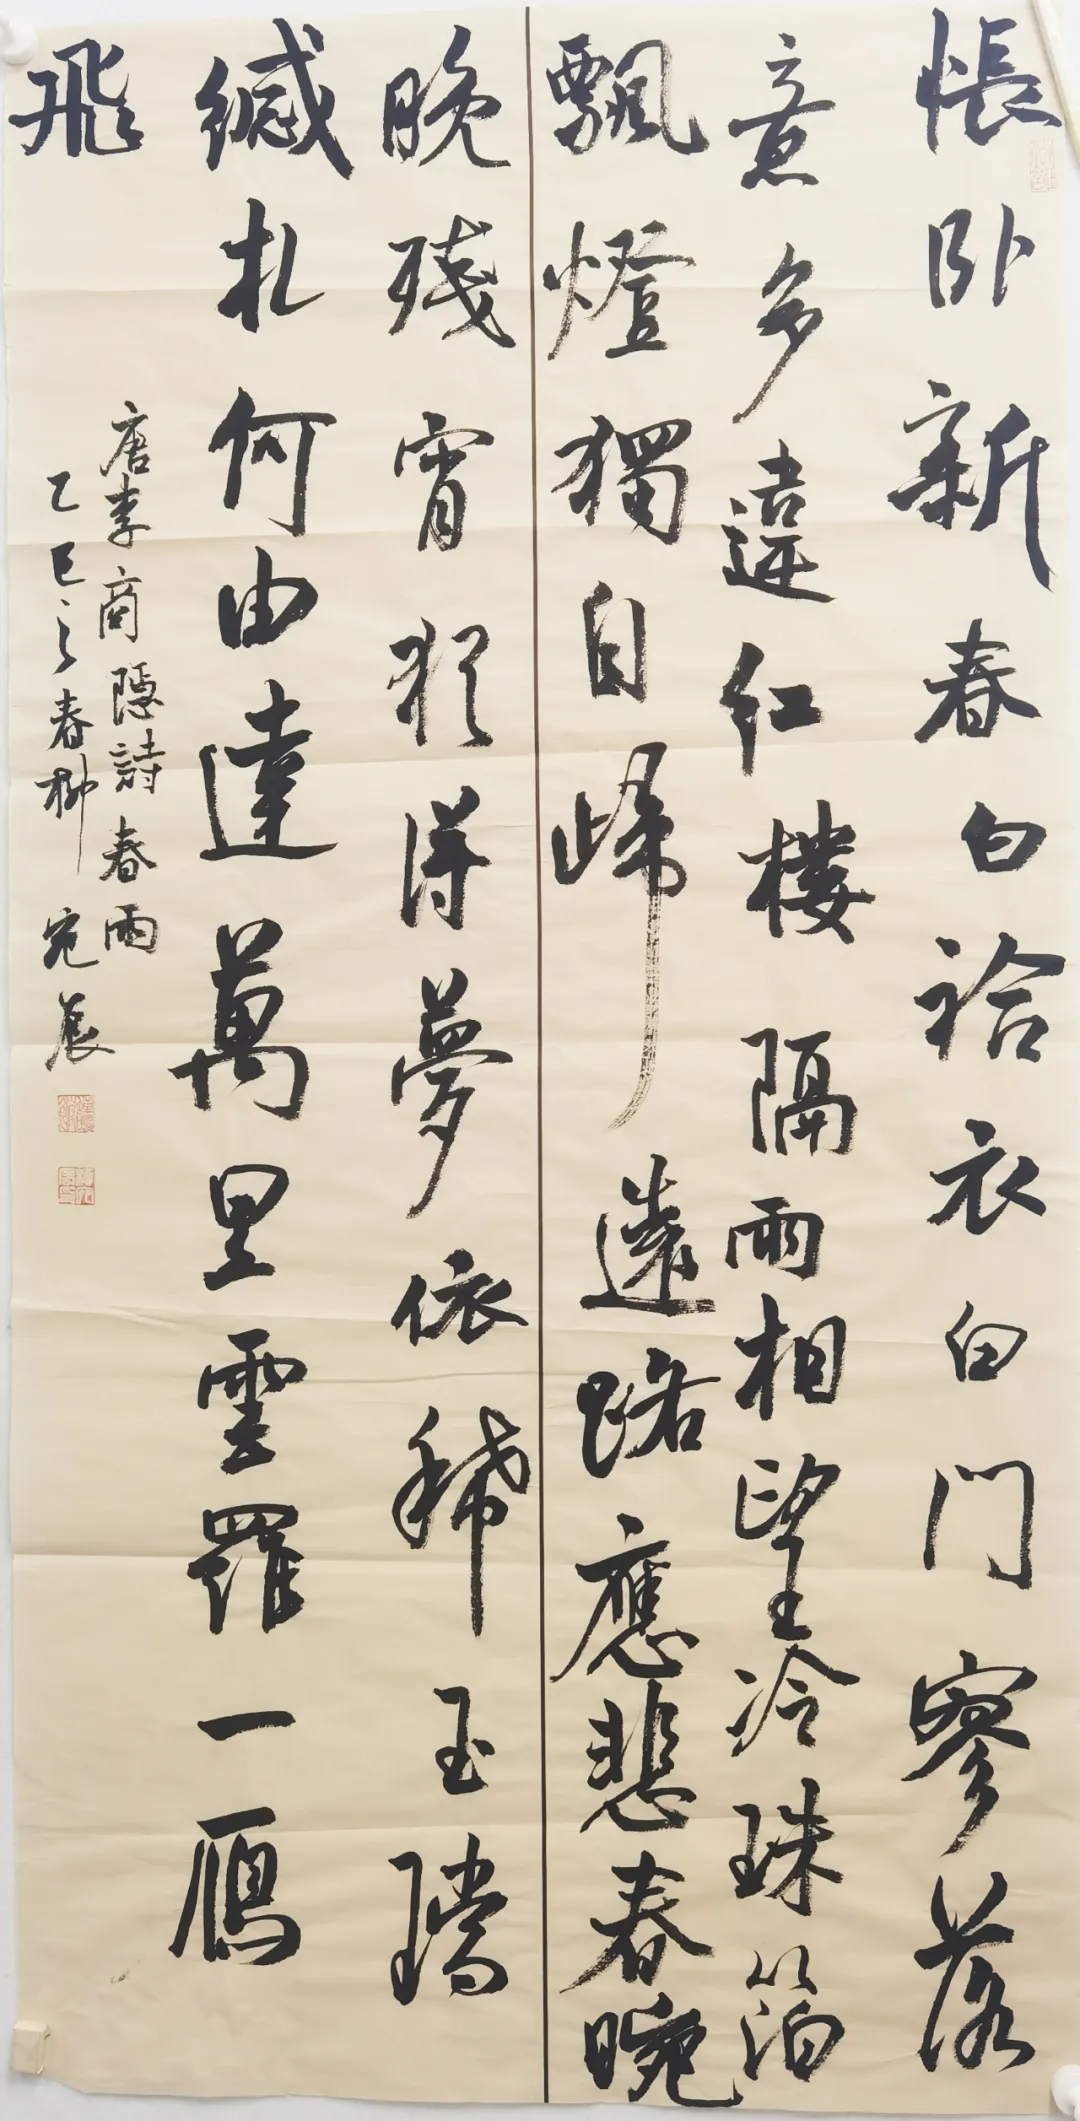 悵卧新春白袷衣白门寥落
意多違红樓隔雨相望冷珠箔
飄燈獨自歸遠路應悲春晼
晚残宵猶得夢依稀玉璫
緘札何由達萬里雲羅一鴈
飛
唐李商隱詩春雨
乙巳之春柳宛